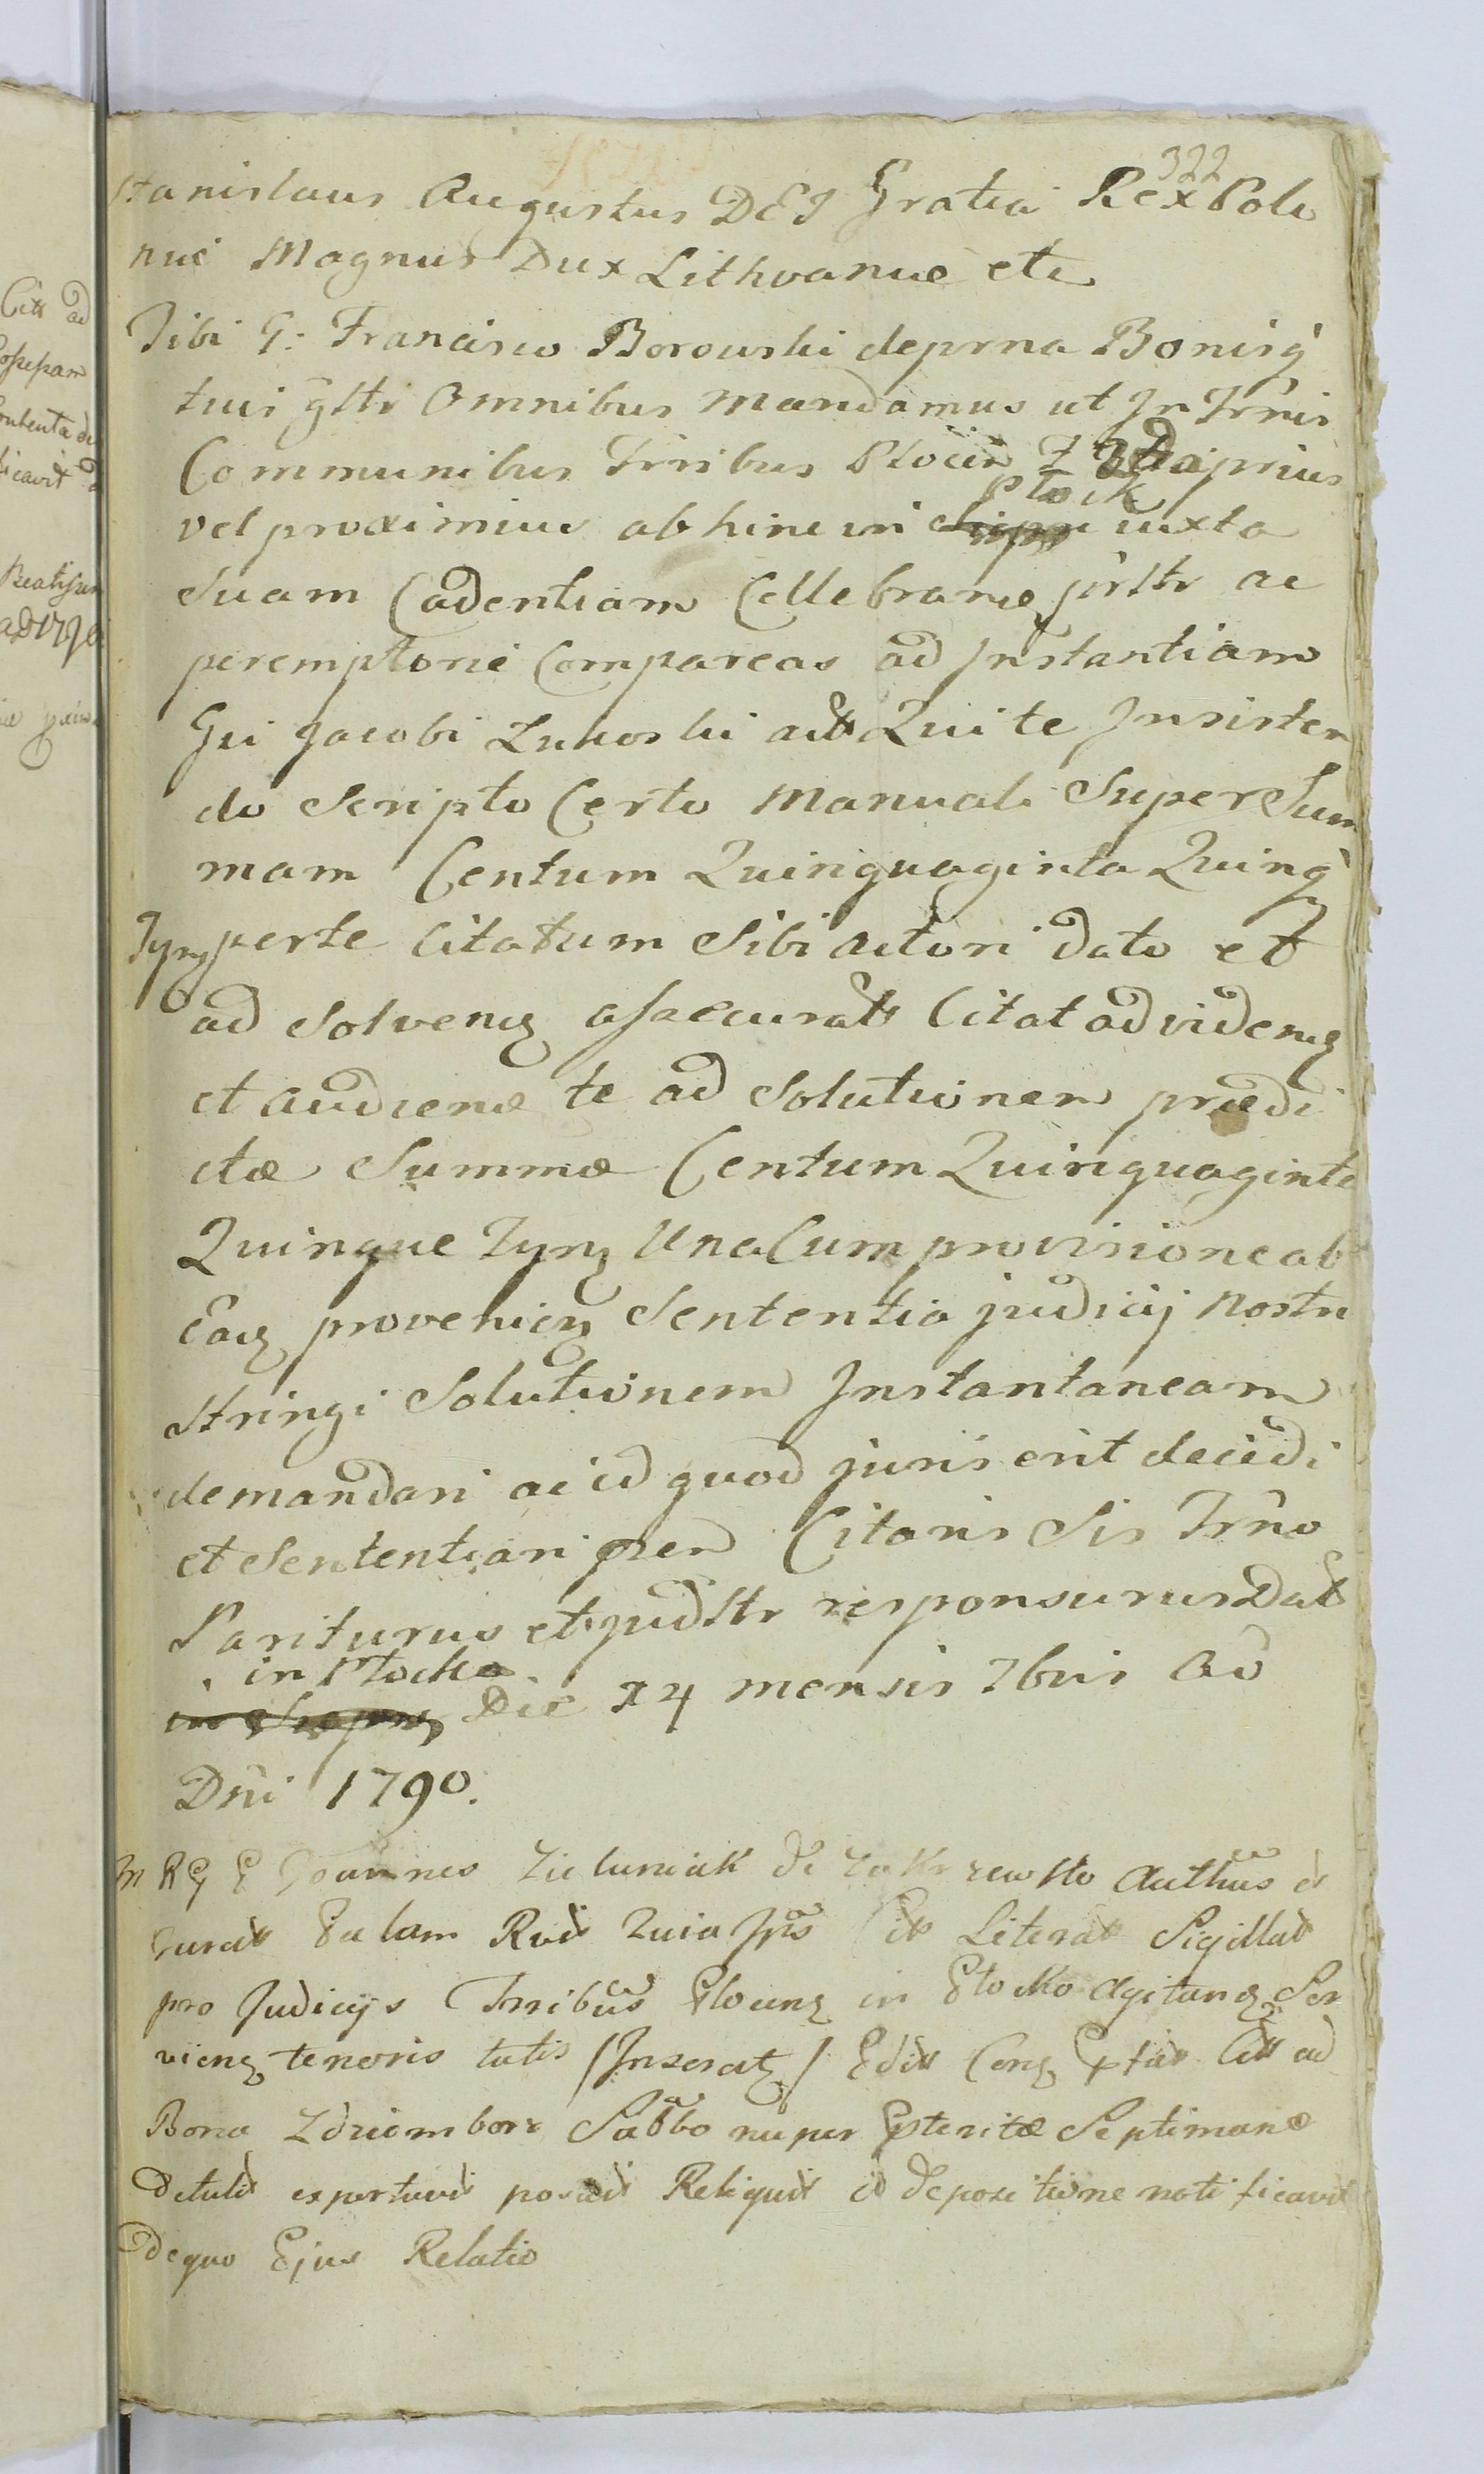 322
Stanislaus Augustus DEI Gratia Rex Polo
niæ Magnus Dux Lithvaniæ etc
Tibi G: Francisco Borowski deprna Bonisq̀
tuis gltr Omnibus mandamus ut In Trnis
Communibus Trribus Plocen prius
Plock
vel proximius ab hinc in iuxta
Suam Cadentiam Cellebranȩ prltr ac
peremptorie Compareas ad Instantiam
Gsi Jacobi Lukoski act Qui te Insisten
do Scripto Certo Manuali Super Sum
mam Centum Quinquaginta Quinq̀
Tynȩ perte Citatum Sibi actori dato et
ad Solvenȩ assecurat Citat ad videnȩ
et audienȩ te ad Solutionem prædi
ctæ Summæ Centum Quinquaginta
Quinque Tynȩ Una Cum provisione ab
Eaȩ provenienȩ Sententia judicij Nostri
Stringi Solutionem Instantaneam
demandari ac id quod juris erit decidi
et Sententiari pren Citaris Sis Trno
Pariturus et judltr responsurus Dat
in Plocko
in Die 24 mensis 7bris Ao
Dni 1790.
In R G E Joannes Zieluniak de Zakrzewko Authus et
Jurat Palam Rvit Quia Ipse Cit Literat Sigillat
pro Judicijs Trribus Plocenȩ in Plocko Agitanȩ Ser
vienȩ tenoris talis /Inseratȩ/ Edit Conȩ Extat Citt ad
Bona Zdziemborz Sabbo nuper Pteritæ Septimanæ
Detulit exportavit posuit Reliquit et depositione notificavit
De quo Ejus Relatio
Citt ad
Contenta de
ficavit